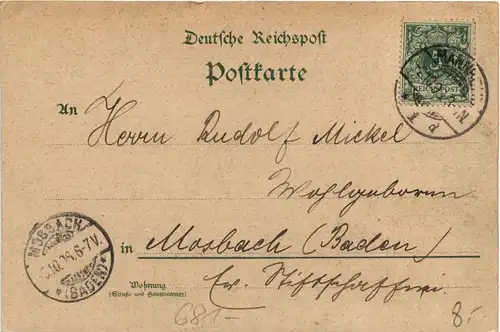 Deutsche Reichspost
Postkarte
REICHSPOST
An
Herrn Rudolf Mickel
Wohlgeboren
in Mosbach (Baden)
Ev. Stiftschaffnei.
Wohnung
(Straße und Hausnummer)
MOSBACH
6-7V.
(BADEN)
681-
8.-